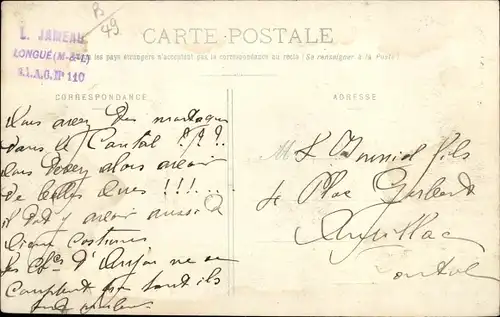 B
49
L. JAMEAU
LONGUÉ (M-&-L)
S.I.A.G. Nº 110
CARTE POSTALE
les pays étrangers n'acceptent pas la correspondance au recto (Se renseigner à la Poste)
CORRESPONDANCE
ADRESSE
Vous avez des montagnes
dans le Cantal ???
vous devez alors avoir
de belles vues !!!...
il doit y avoir aussi de
vieux costumes
les d'Anjou ne se
comptent tant ils
sont
M L fils
Place Gerbert
Aurillac
Cantal